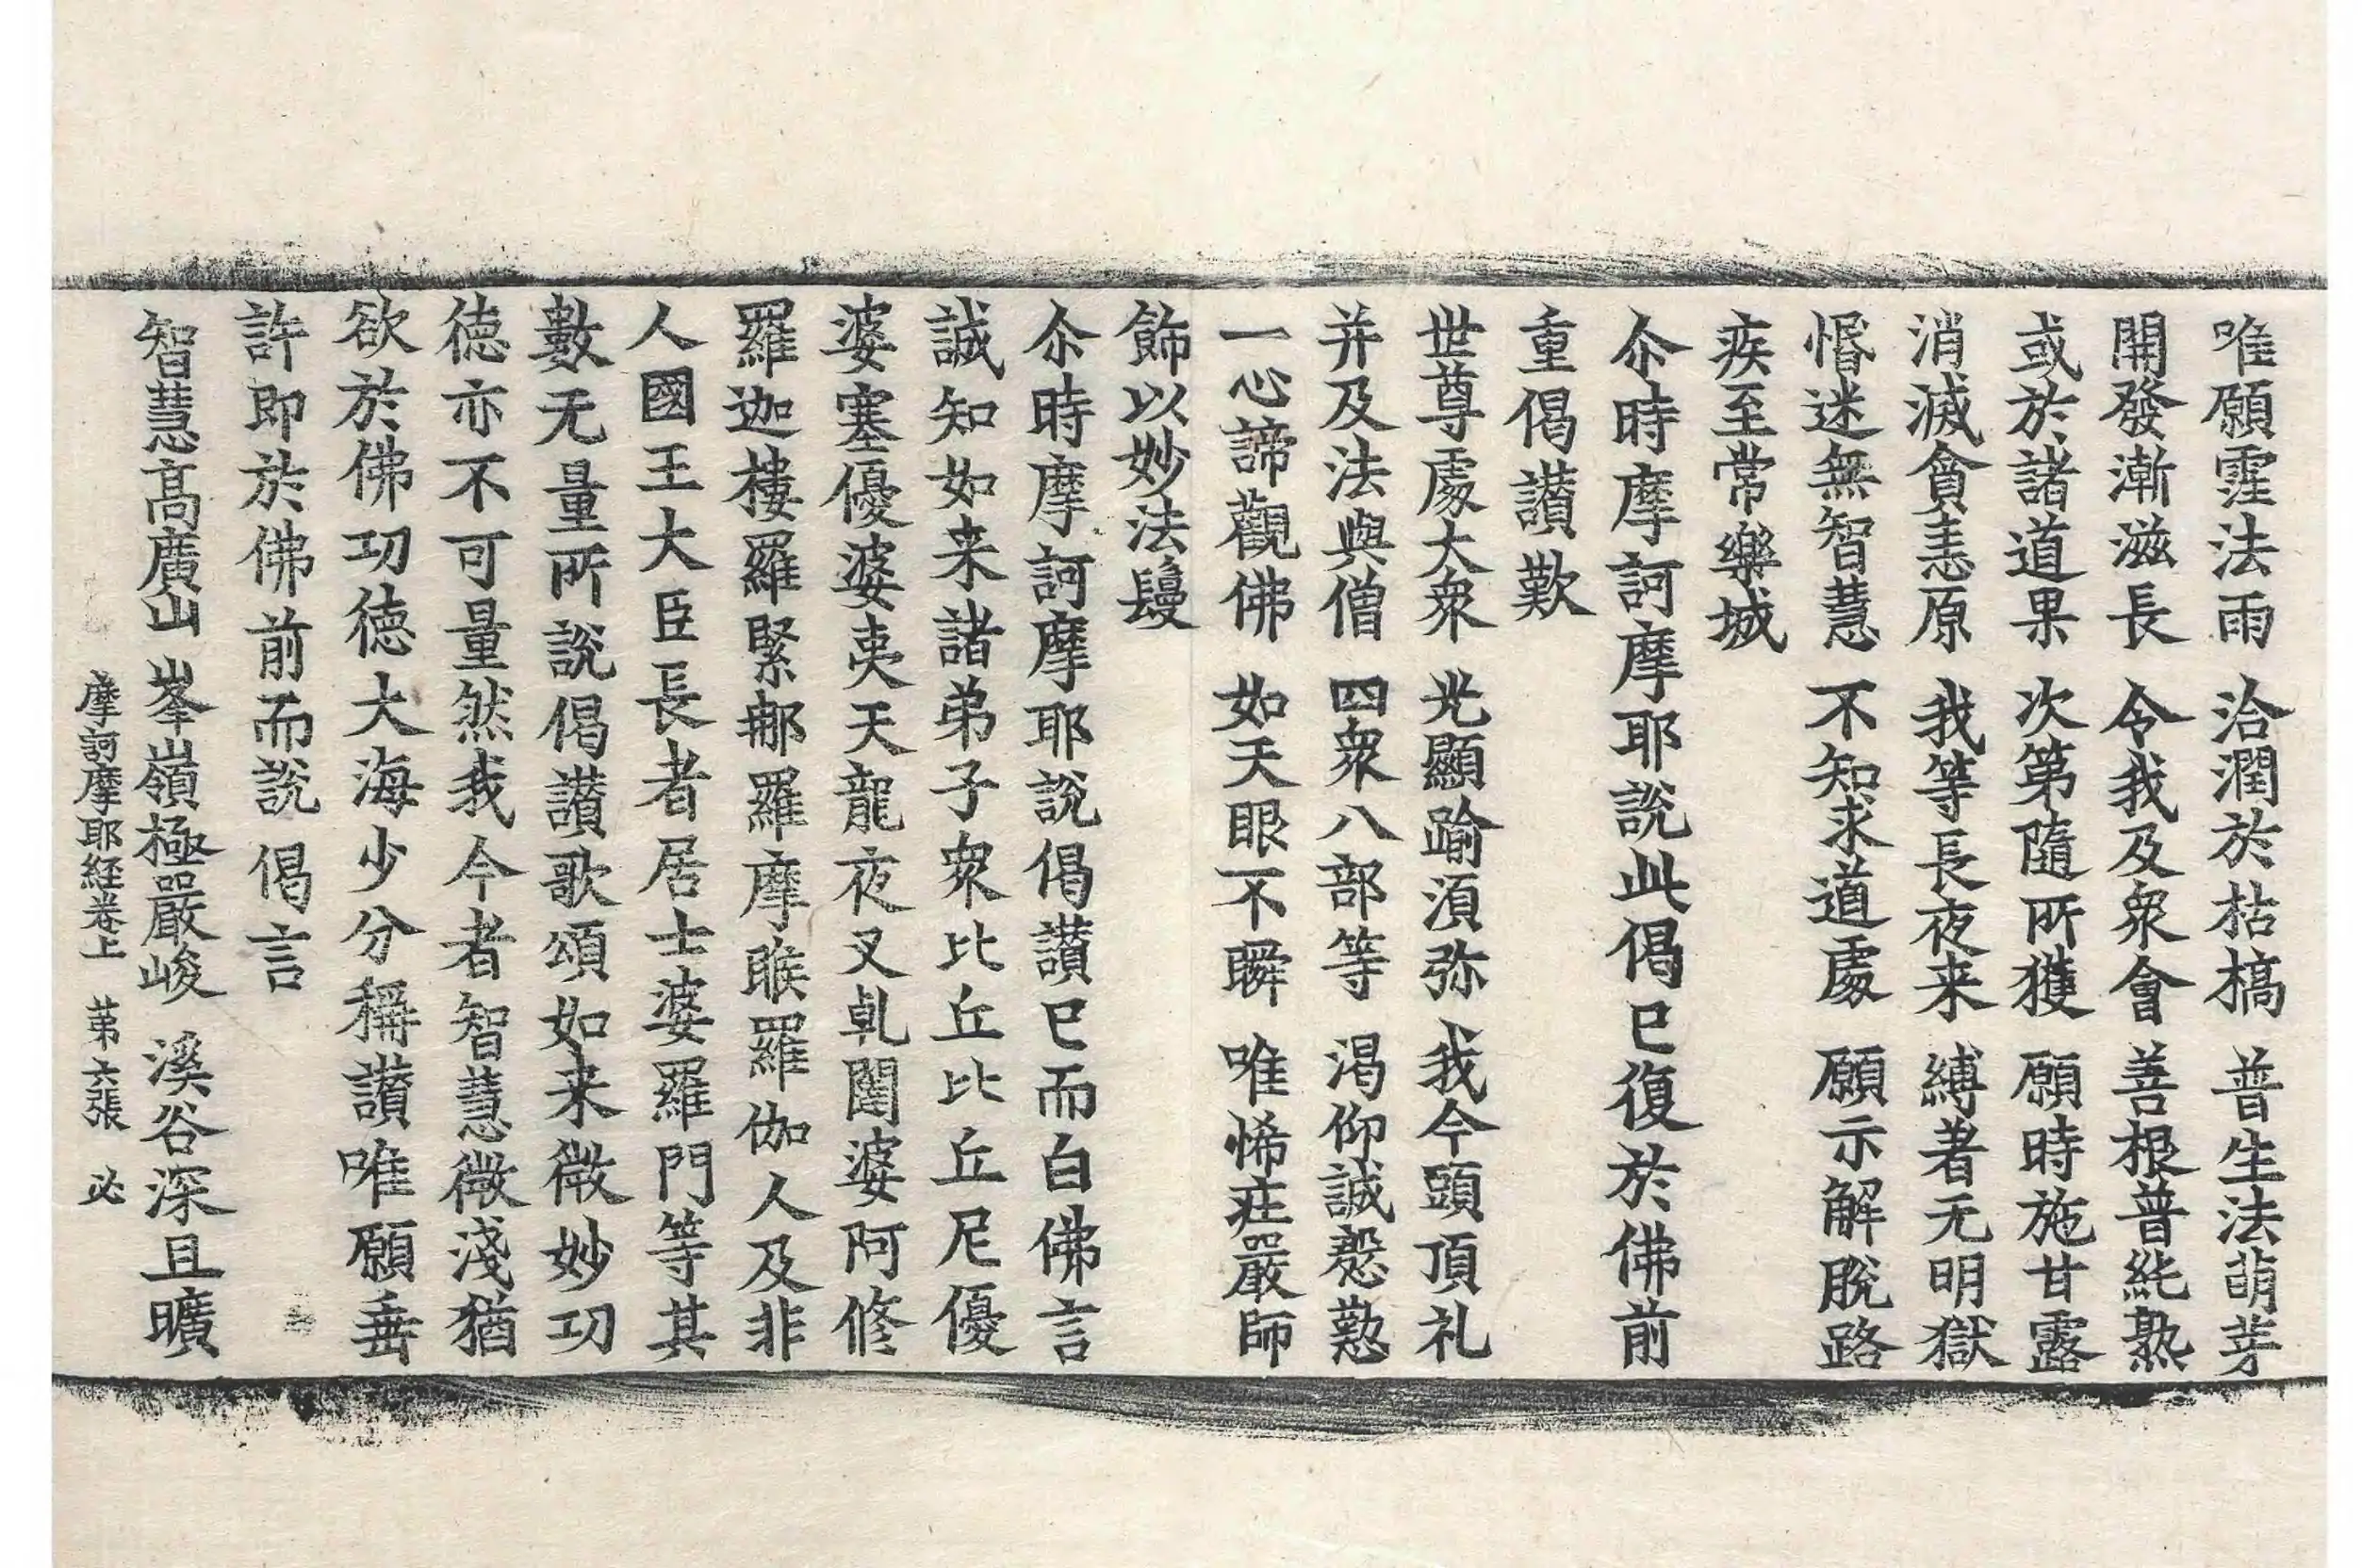 唯願霔法雨　洽潤於枯槁　普生法萌芽
開發漸滋長　令我及衆會　善根普純熟
或於諸道果　次第隨所獲　願時施甘露
消滅貪恚原　我等長夜来　縛著无明獄
惛迷無智慧　不知求道處　願示解脫路
疾至常樂城
尒時摩訶摩耶說此偈已復於佛前
重偈讃歎
世尊處大衆　光顯踰湏弥　我今頭頂礼
并及法與僧　四衆八部等　渴仰誠慇懃
一心諦觀佛　如天眼不瞬　唯悕莊嚴師
飾以妙法鬘
尒時摩訶摩耶說偈讃已而白佛言
誠知如来諸弟子衆比丘比丘尼優
婆塞優婆夷天龍夜叉乹闥婆阿修
羅迦樓羅緊那羅摩睺羅伽人及非
人國王大臣長者居士婆羅門等其
數无量所說偈讃歌頌如来微妙功
德亦不可量然我今者智慧微淺猶
欲於佛功德大海少分稱讃唯願垂
許即於佛前而說偈言
智慧高廣山　峯嶺極嚴峻　溪谷深且曠
摩訶摩耶経卷上　苐六張　必